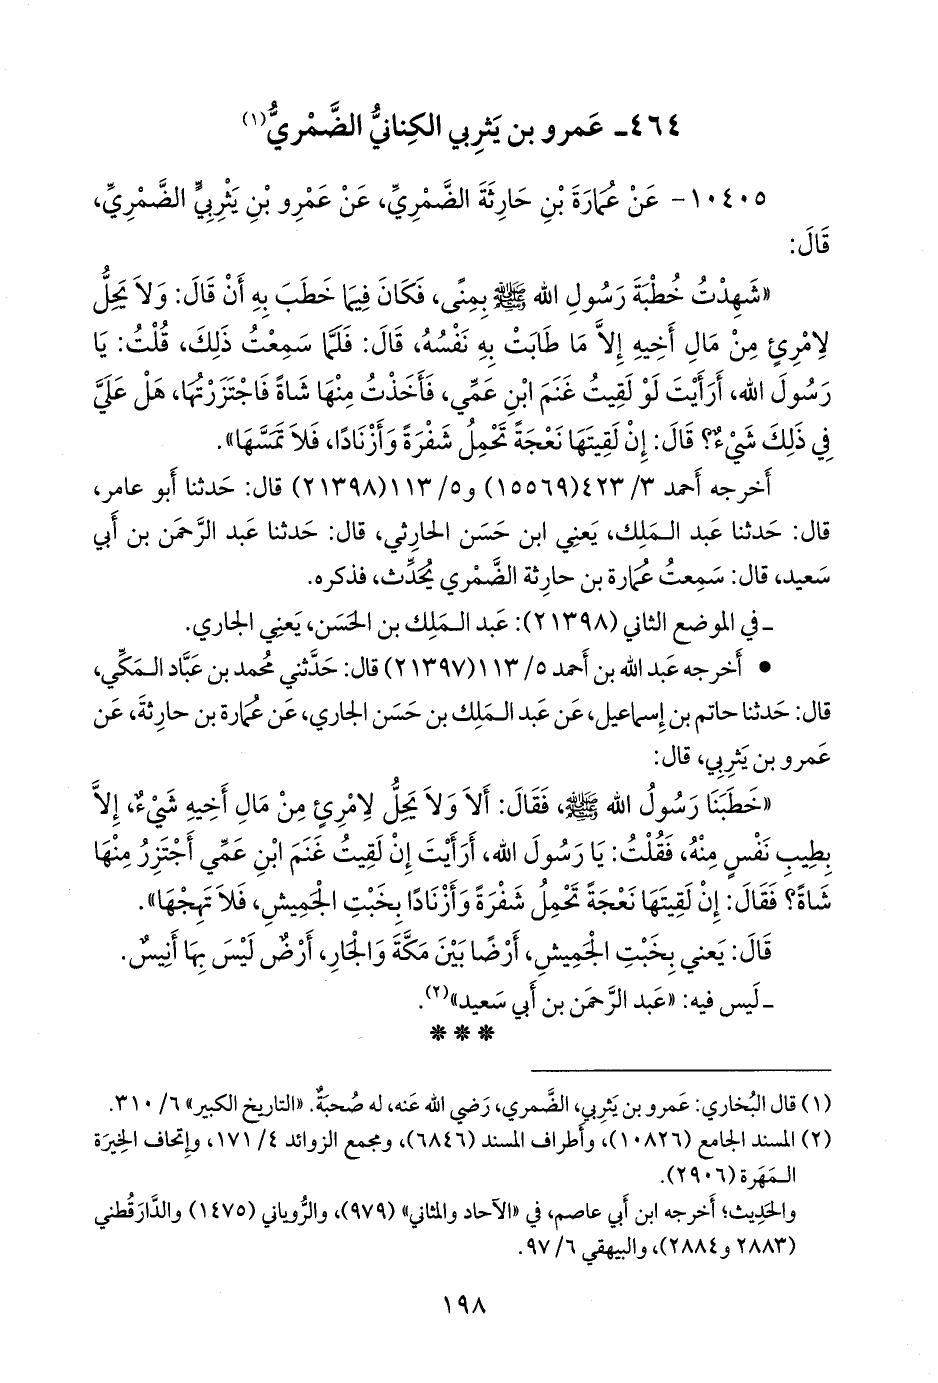 ٤٦٤ـ عَمرو بن يَثرِبي الكِنانيُّ الضَّمْريُّ(١)
١٠٤٠٥- عَنْ عُمَارَةَ بْنِ حَارِثَةَ الضَّمْرِيِّ، عَنْ عَمْرِو بْنِ يَثْرِبِيٍّ الضَّمْرِيِّ،
قَالَ:
«شَهِدْتُ خُطْبَةَ رَسُولِ الله ﷺ بِمِنًى، فَكَانَ فِيمَا خَطَبَ بِهِ أَنْ قَالَ: وَلاَ يَحِلُّ
لاِمْرِئٍ مِنْ مَالِ أَخِيهِ إِلاَّ مَا طَابَتْ بِهِ نَفْسُهُ، قَالَ: فَلَمَّا سَمِعْتُ ذَلِكَ، قُلْتُ: يَا
رَسُولَ الله، أَرَأَيْتَ لَوْ لَقِيتُ غَنَمَ ابْنِ عَمِّي، فَأَخَذْتُ مِنْهَا شَاةً فَاجْتَزَرْتُهَا، هَلْ عَلَيَّ
فِي ذَلِكَ شَيْءٌ؟ قَالَ: إِنْ لَقِيتَهَا نَعْجَةً تَحْمِلُ شَفْرَةً وَأَزْنَادًا، فَلاَ تَمَسَّهَا».
أَخرجه أَحمد ٣/ ٤٢٣(١٥٥٦٩) و٥/ ١١٣(٢١٣٩٨) قال: حَدثنا أَبو عامر،
قال: حَدثنا عَبد الـمَلِك، يَعنِي ابن حَسَن الحارِثي، قال: حَدثنا عَبد الرَّحمَن بن أَبي
سَعيد، قال: سَمِعتُ عُمارة بن حارِثة الضَّمْري يُحَدِّث، فذكره.
ـ في الموضع الثاني (٢١٣٩٨): عَبد الـمَلِك بن الحَسَن، يَعنِي الجاري.
• أَخرجه عَبد الله بن أَحمد ٥/ ١١٣(٢١٣٩٧) قال: حَدَّثني مُحمد بن عَبَّاد الـمَكِّي،
قال: حَدثنا حاتم بن إِسماعيل، عَن عَبد الـمَلِك بن حَسَن الجاري، عَن عُمَارة بن حارِثةَ، عَن
عَمرو بن يَثرِبي، قال:
«خَطَبَنَا رَسُولُ الله ﷺ، فَقَالَ: أَلاَ وَلاَ يَحِلُّ لاِمْرِئٍ مِنْ مَالِ أَخِيهِ شَيْءٌ، إِلاَّ
بِطِيبِ نَفْسٍ مِنْهُ، فَقُلْتُ: يَا رَسُولَ الله، أَرَأَيْتَ إِنْ لَقِيتُ غَنَمَ ابْنِ عَمِّي أَجْتَزِرُ مِنْهَا
شَاةً؟ فَقَالَ: إِنْ لَقِيتَهَا نَعْجَةً تَحْمِلُ شَفْرَةً وَأَزْنَادًا بِخَبْتِ الْجَمِيشِ، فَلاَ تَهِجْهَا».
قَالَ: يَعني بِخَبْتِ الْجَمِيشِ، أَرْضًا بَيْنَ مَكَّةَ وَالْجَارِ، أَرْضٌ لَيْسَ بِهَا أَنِيسٌ.
ـ لَيس فيه: «عَبد الرَّحمَن بن أَبي سَعيد»(٢).
* * *
(١) قال البُخاري: عَمرو بن يَثرِبي، الضَّمري، رَضي الله عَنه، له صُحبَةٌ. «التاريخ الكبير» ٦/ ٣١٠.
(٢) المسند الجامع (١٠٨٢٦)، وأَطراف المسند (٦٨٤٦)، ومجمع الزوائد ٤/ ١٧١، وإِتحاف الخِيرَة
الـمَهَرة (٢٩٠٦).
والحَدِيث؛ أَخرجه ابن أَبي عاصم، في «الآحاد والمثاني» (٩٧٩)، والرُّوياني (١٤٧٥) والدَّارَقُطني
(٢٨٨٣ و٢٨٨٤)، والبيهقي ٦/ ٩٧.
١٩٨